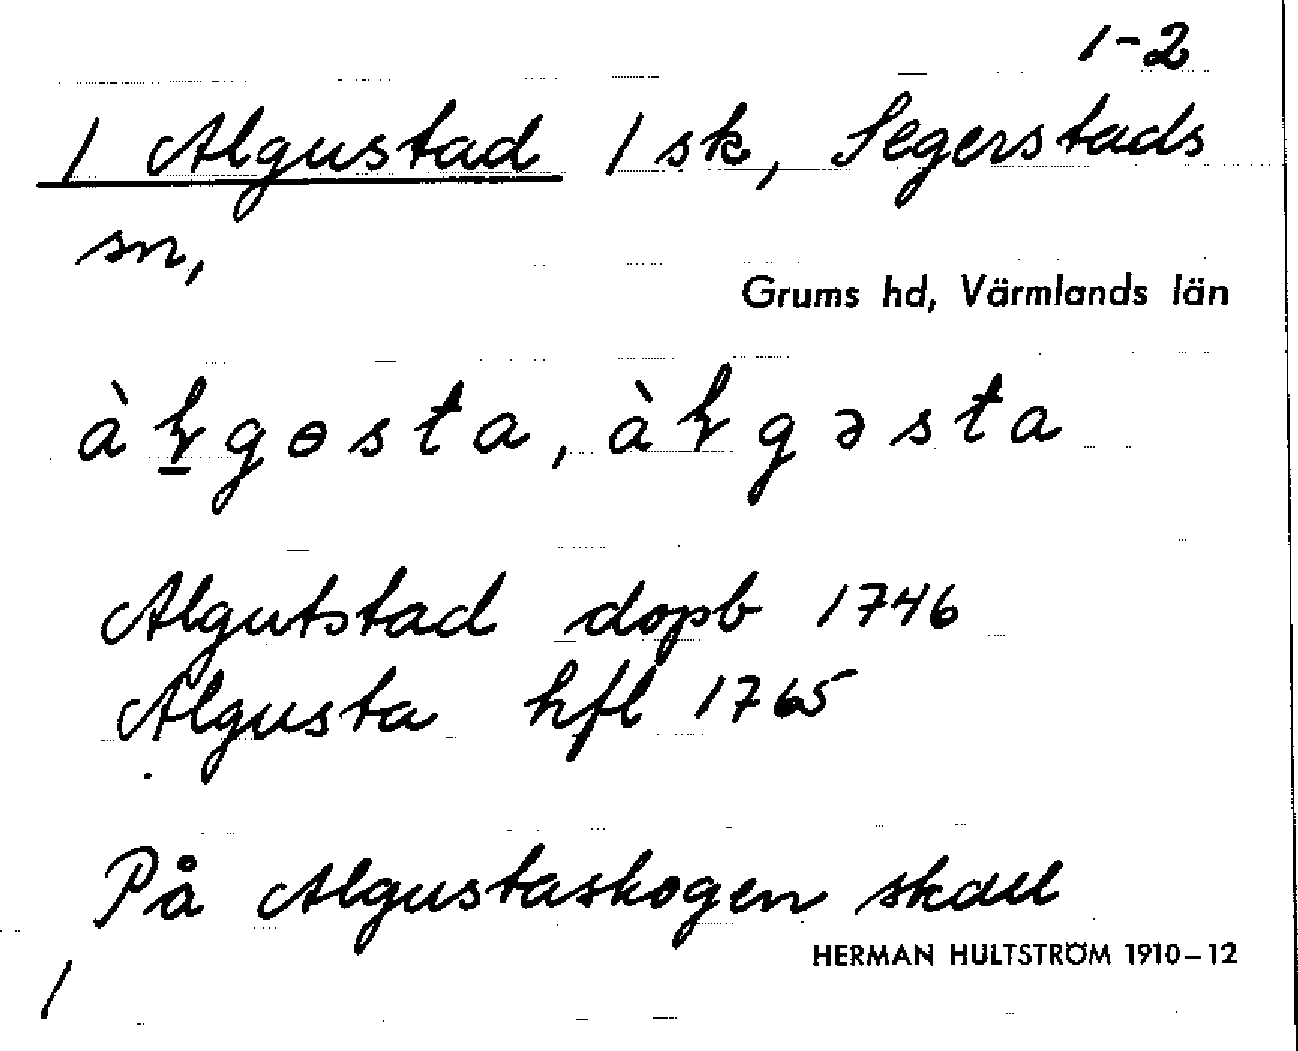 1-2
/ Algustad / sk, Segerstads
sn,
Grums hd, Värmlands län
Algutstad dopb 1746
Algusta hfl 1765
På Algustaskogen skall
HERMAN HULTSTRÖM 1910-12
/